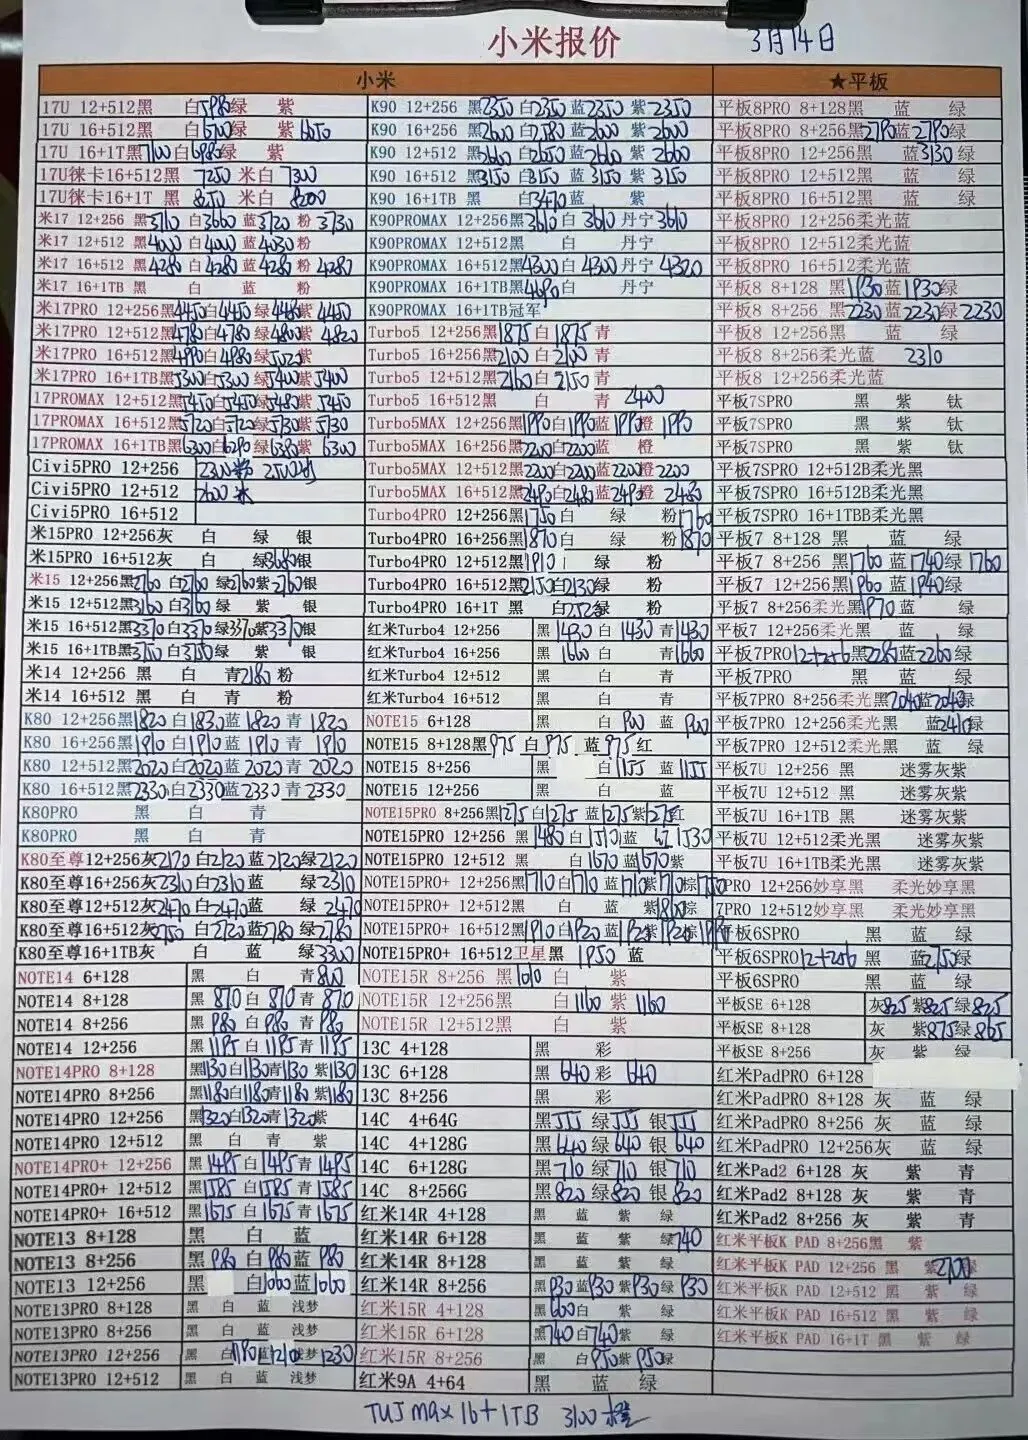 小米报价 3月14日
小米
★平板
17U 12+512黑 白5980绿 紫
17U 16+512黑 白6700绿 紫6650
17U 16+1T黑7100白6980绿 紫
17U徕卡16+512黑 7250 米白 7300
17U徕卡16+1T 黑 8250 米白 8200
米17 12+256 黑3710白3660蓝3720粉 3730
米17 12+512 黑4000白4000蓝4030粉
米17 16+512 黑4280白4280蓝4280粉 4280
米17 16+1TB 黑 白 蓝 粉
米17PRO 12+256黑4450白4450绿4460紫4450
米17PRO 12+512黑4780白4780绿4800紫4820
米17PRO 16+512黑4990白4980绿5020紫
米17PRO 16+1TB黑5300白5300绿5400紫5400
17PROMAX 12+512黑5450白5450绿5480紫5450
17PROMAX 16+512黑5720白5720绿5730紫5730
17PROMAX 16+1TB黑6300白6290绿6380紫6300
Civi5PRO 12+256 2300 2500
Civi5PRO 12+512 2600
Civi5PRO 16+512
米15PRO 12+256灰 白 绿 银
米15PRO 16+512灰 白 绿3680银
米15 12+256黑2760 白2760 绿2760紫2760银
米15 12+512黑3160 白3160 绿 紫 银
米15 16+512黑3370白3370绿3370紫3370银
米15 16+1TB黑3750白3750绿 紫 银
米14 12+256 黑 白 青2180粉
米14 16+512 黑 白 青 粉
K80 12+256黑1820白1830蓝1820青 1820
K80 16+256黑1910白1910蓝1910青 1910
K80 12+512黑2020白2020蓝2020青 2020
K80 16+512黑2330白2330蓝2330青 2330
K80PRO 黑 白 青
K80PRO 黑 白 青
K80至尊12+256灰2120白2120蓝2120绿2120
K80至尊16+256灰2310白2310蓝 绿2310
K80至尊12+512灰2470白2470蓝 绿2470
K80至尊16+512灰2750白2720蓝2780绿2780
K80至尊16+1TB灰 白 蓝 绿3300
NOTE14 6+128 黑 白 青800
NOTE14 8+128 黑870白870青870
NOTE14 8+256 黑980白980青980
NOTE14 12+256 黑1185白1185青1185
NOTE14PRO 8+128 黑1130白1130青1130紫1130
NOTE14PRO 8+256 黑1180白1180青1180紫1180
NOTE14PRO 12+256 黑1320白1320青1320紫
NOTE14PRO 12+512 黑 白 青 紫
NOTE14PRO+ 12+256 黑1495白1495青1495
NOTE14PRO+ 12+512 黑1585白1585青1585
NOTE14PRO+ 16+512 黑1675白1675青1675
NOTE13 8+128 黑 白 蓝
NOTE13 8+256 黑980白980蓝980
NOTE13 12+256 黑 白1060蓝1060
NOTE13PRO 8+128 黑 白 蓝 浅梦
NOTE13PRO 8+256 黑 白 蓝 浅梦
NOTE13PRO 12+256 黑 白1190蓝1210 1230
NOTE13PRO 12+512 黑 白 蓝 浅梦
K90 12+256 黑2350白2350蓝2350紫2350
K90 16+256 黑2600白2580蓝2600紫2600
K90 12+512 黑2660白2650蓝2660紫2660
K90 16+512 黑3150白3150蓝3150紫3150
K90 16+1TB 黑 白3470蓝 紫
K90PROMAX 12+256黑3610白 3610丹宁3610
K90PROMAX 12+512黑 白 丹宁
K90PROMAX 16+512黑4300白 4300丹宁 4320
K90PROMAX 16+1TB黑4690白 丹宁
K90PROMAX 16+1TB冠军
Turbo5 12+256黑1875白1875青
Turbo5 16+256黑2100白2100青
Turbo5 12+512黑2160白2150青
Turbo5 16+512黑 白 青 2400
Turbo5MAX 12+256黑1990白1990蓝1990橙 1990
Turbo5MAX 16+256黑2200白2200蓝 橙
Turbo5MAX 12+512黑2200白2200蓝2200橙 2200
Turbo5MAX 16+512黑2490白2480蓝2490橙 2480
Turbo4PRO 12+256黑1750白 绿 粉1760
Turbo4PRO 16+256黑1870白 绿 粉1870
Turbo4PRO 12+512黑1910 绿 粉
Turbo4PRO 16+512黑2150白2130绿 粉
Turbo4PRO 16+1T 黑 白2520绿 粉
红米Turbo4 12+256 黑1430白 1430青1430
红米Turbo4 16+256 黑1660白 青1660
红米Turbo4 12+512 黑 白 青
红米Turbo4 16+512 黑 白 青
NOTE15 6+128 黑 白900蓝900
NOTE15 8+128黑975白975蓝975红
NOTE15 8+256 黑 白1155蓝1155
NOTE15 12+256 黑 白 蓝
NOTE15PRO 8+256黑1275白1275蓝1275紫1275红
NOTE15PRO 12+256 黑1480白1510蓝 红1530
NOTE15PRO 12+512 黑 白1670蓝1670紫
NOTE15PRO+ 12+256黑1710白1710蓝1710紫1710棕1750
NOTE15PRO+ 12+512黑 白 蓝 紫1800棕
NOTE15PRO+ 16+512黑1910白1920蓝1920紫1920棕
NOTE15PRO+ 16+512卫星黑 1950蓝
NOTE15R 8+256 黑1010白 紫
NOTE15R 12+256黑 白1160紫1160
NOTE15R 12+512黑 白 紫
13C 4+128 黑 彩
13C 6+128 黑640彩 640
13C 8+256 黑 彩
14C 4+64G 黑555绿555银555
14C 4+128G 黑640绿640银640
14C 6+128G 黑710绿710银710
14C 8+256G 黑820绿820银820
红米14R 4+128 黑 蓝 紫 绿
红米14R 6+128 黑 蓝 紫 绿740
红米14R 8+128 黑 蓝 紫 绿
红米14R 8+256 黑930蓝930紫930绿930
红米15R 4+128 黑660白 紫 绿
红米15R 6+128 黑740白740紫 绿
红米15R 8+256 黑 白950紫950绿
红米9A 4+64 黑 蓝 绿
平板8PRO 8+128黑 蓝 绿
平板8PRO 8+256黑2790蓝2790绿
平板8PRO 12+256黑 蓝3130绿
平板8PRO 12+512黑 蓝 绿
平板8PRO 16+512黑 蓝 绿
平板8PRO 12+256柔光蓝
平板8PRO 12+512柔光蓝
平板8PRO 16+512柔光蓝
平板8 8+128 黑1930蓝1930绿
平板8 8+256 黑2230蓝2230绿2230
平板8 12+256黑 蓝 绿
平板8 8+256柔光蓝 2310
平板8 12+256柔光蓝
平板7SPRO 黑 紫 钛
平板7SPRO 黑 紫 钛
平板7SPRO 黑 紫 钛
平板7SPRO 12+512B柔光黑
平板7SPRO 16+512B柔光黑
平板7SPRO 16+1TBB柔光黑
平板7 8+128 黑 蓝 绿
平板7 8+256 黑1760蓝1740绿1760
平板7 12+256黑1960蓝1940绿
平板7 8+256柔光黑1970蓝 绿
平板7 12+256柔光黑 蓝 绿
平板7PRO12+256黑2280蓝2260绿
平板7PRO 黑 蓝 绿
平板7PRO 8+256柔光黑2040蓝2040绿
平板7PRO 12+256柔光黑 蓝2410绿
平板7PRO 12+512柔光黑 蓝 绿
平板7U 12+256 黑 迷雾灰紫
平板7U 12+512 黑 迷雾灰紫
平板7U 16+1TB 黑 迷雾灰紫
平板7U 12+512柔光黑 迷雾灰紫
平板7U 16+1TB柔光黑 迷雾灰紫
7PRO 12+256妙享黑 柔光妙享黑
7PRO 12+512妙享黑 柔光妙享黑
平板6SPRO 黑 蓝 绿
平板6SPRO12+256 黑 蓝2750绿
平板6SPRO 黑 蓝 绿
平板SE 6+128 灰825紫825绿825
平板SE 8+128 灰 紫875绿865
平板SE 8+256 灰 紫 绿
红米PadPRO 6+128
红米PadPRO 8+128 灰 蓝 绿
红米PadPRO 8+256 灰 蓝 绿
红米PadPRO 12+256灰 蓝 绿
红米Pad2 6+128 灰 紫 青
红米Pad2 8+128 灰 紫 青
红米Pad2 8+256 灰 紫 青
红米平板K PAD 8+256黑 紫
红米平板K PAD 12+256 黑 紫2700绿
红米平板K PAD 12+512 黑 紫 绿
红米平板K PAD 16+512 黑 紫 绿
红米平板K PAD 16+1T 黑 紫 绿
TU5 max 16+1TB 3100 橙